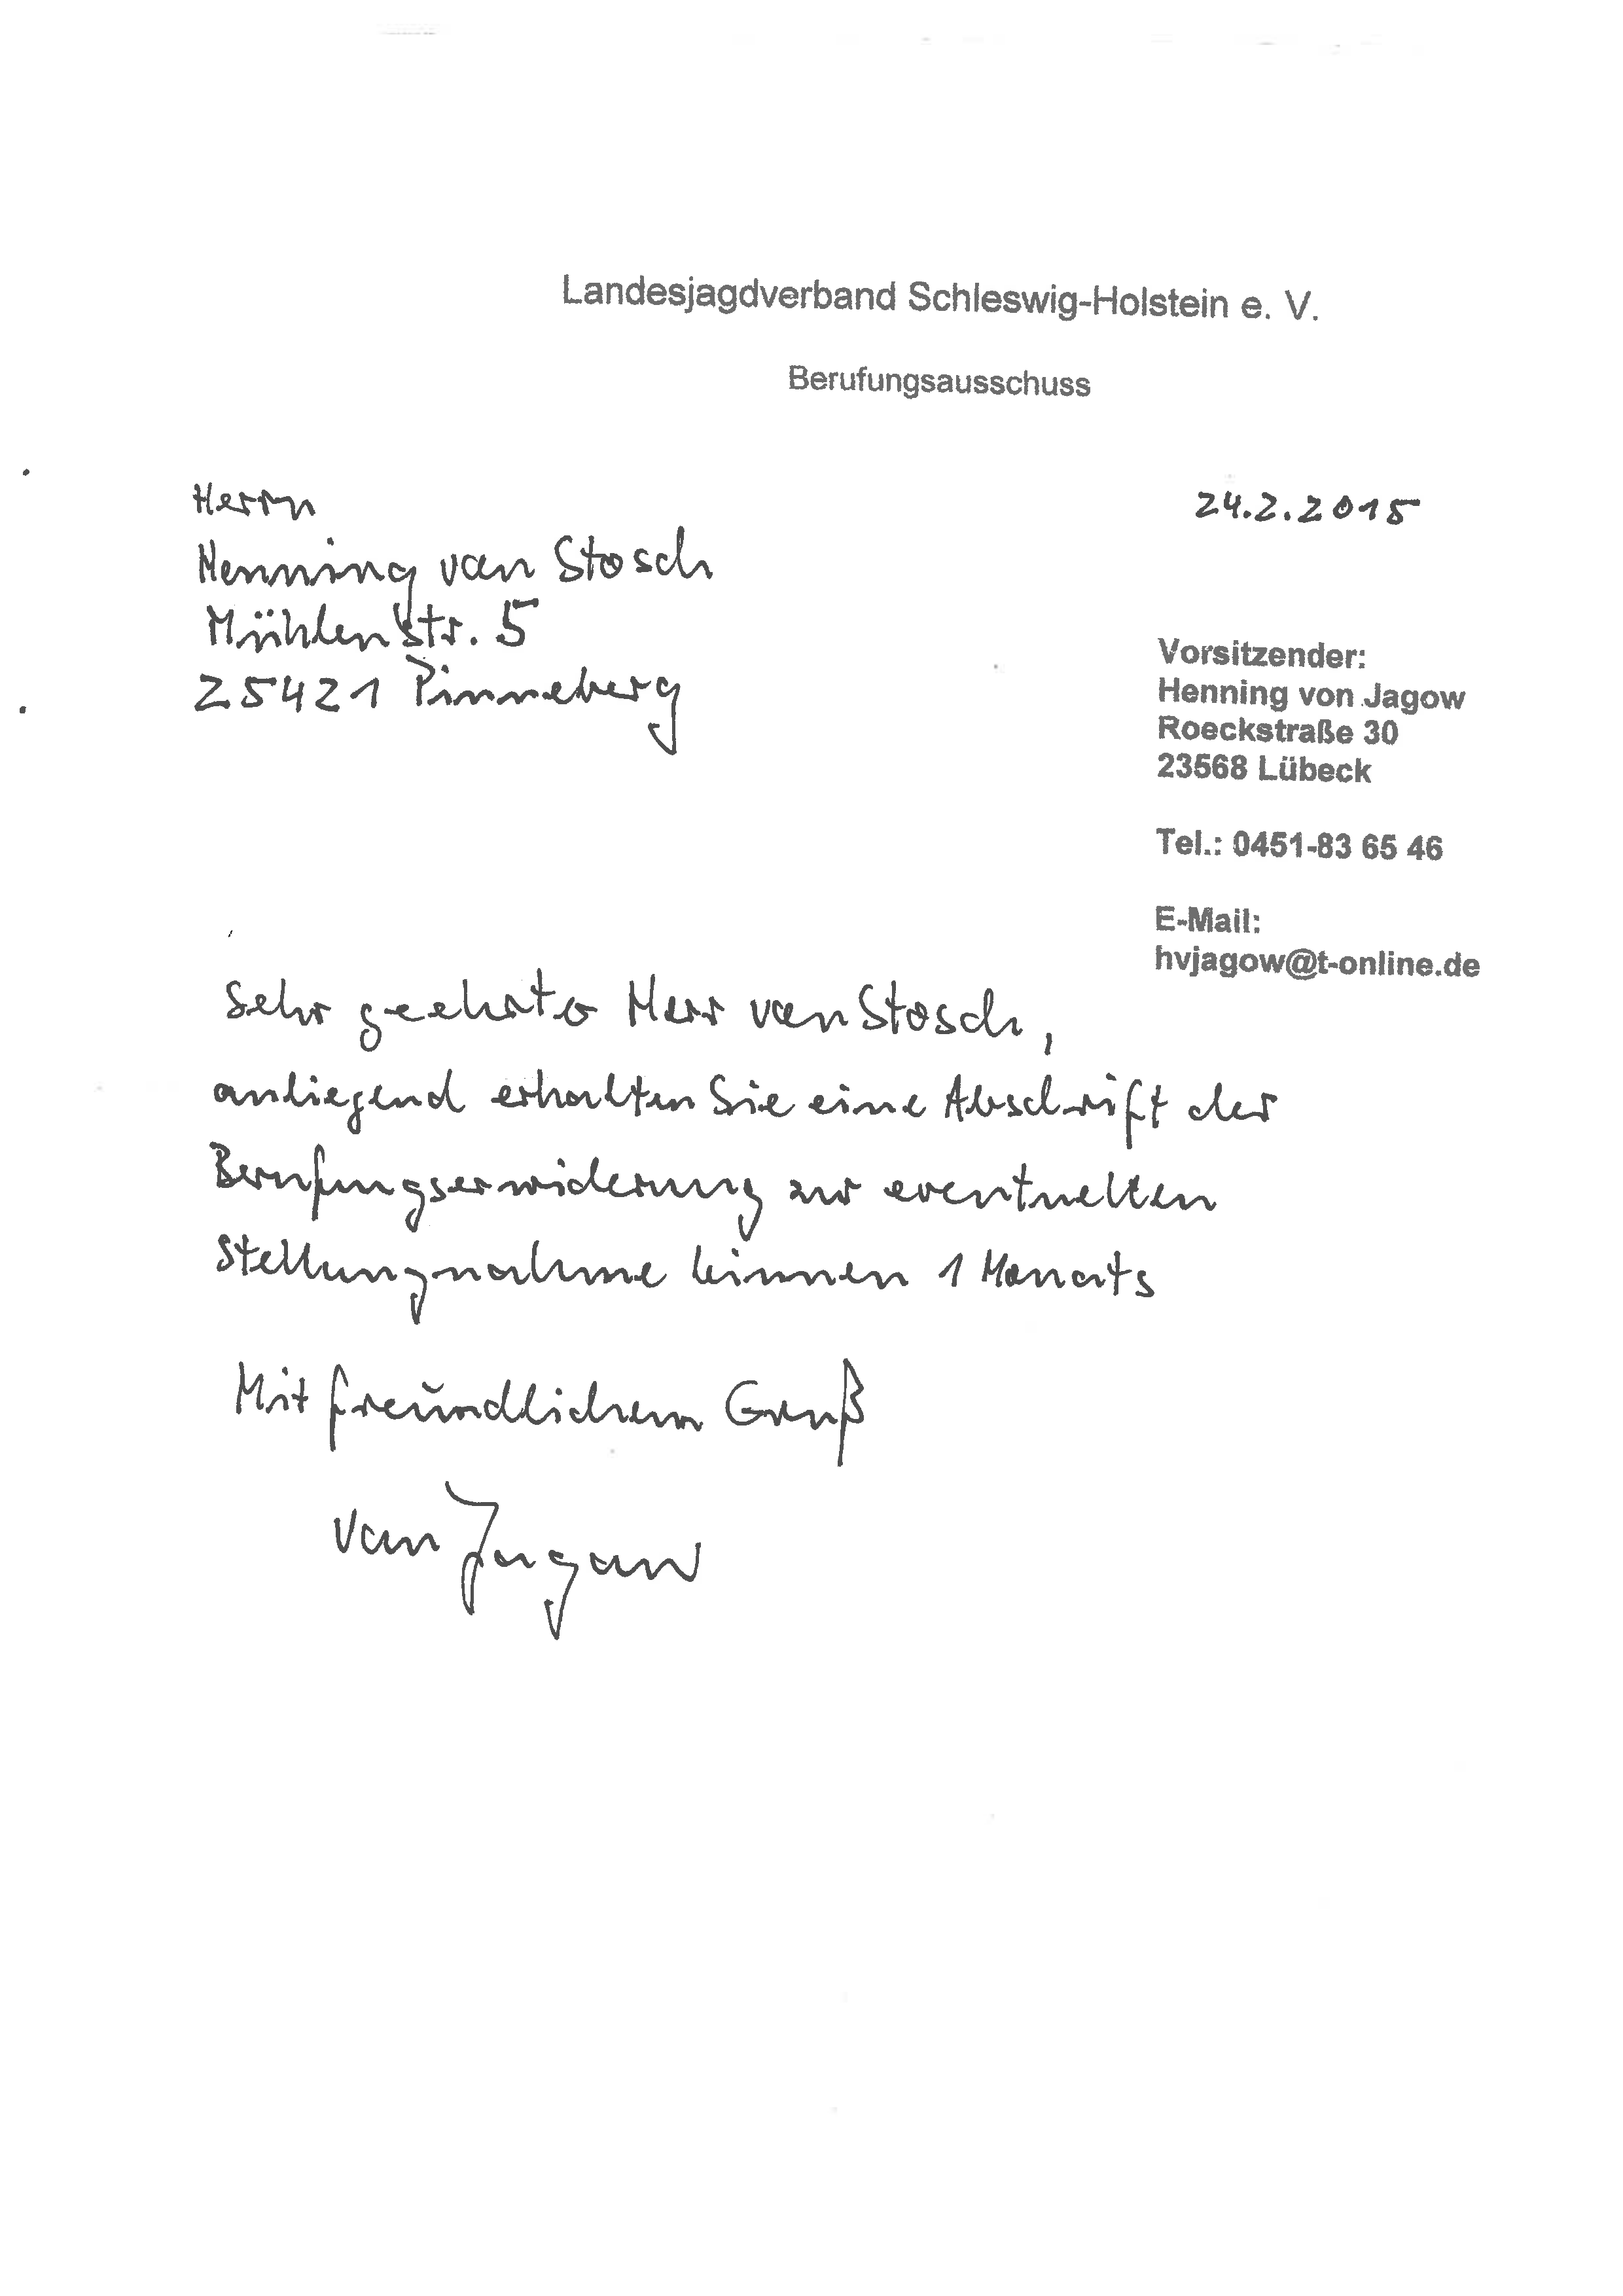 Landesjagdverband Schleswig-Holstein e. V.
Berufungsausschuss
Herrn
Henning von Stosch
Mühlenstr. 5
25421 Pinneberg
24.2.2015
Vorsitzender:
Henning von Jagow
Roeckstraße 30
23568 Lübeck
Tel.: 0451-83 65 46
E-Mail:
hvjagow@t-online.de
Sehr geehrter Herr von Stosch,
anliegend erhalten Sie eine Abschrift der
Berufungserwiderung zur eventuellen
Stellungnahme binnen 1 Monats
Mit freundlichem Gruß
von Jagow